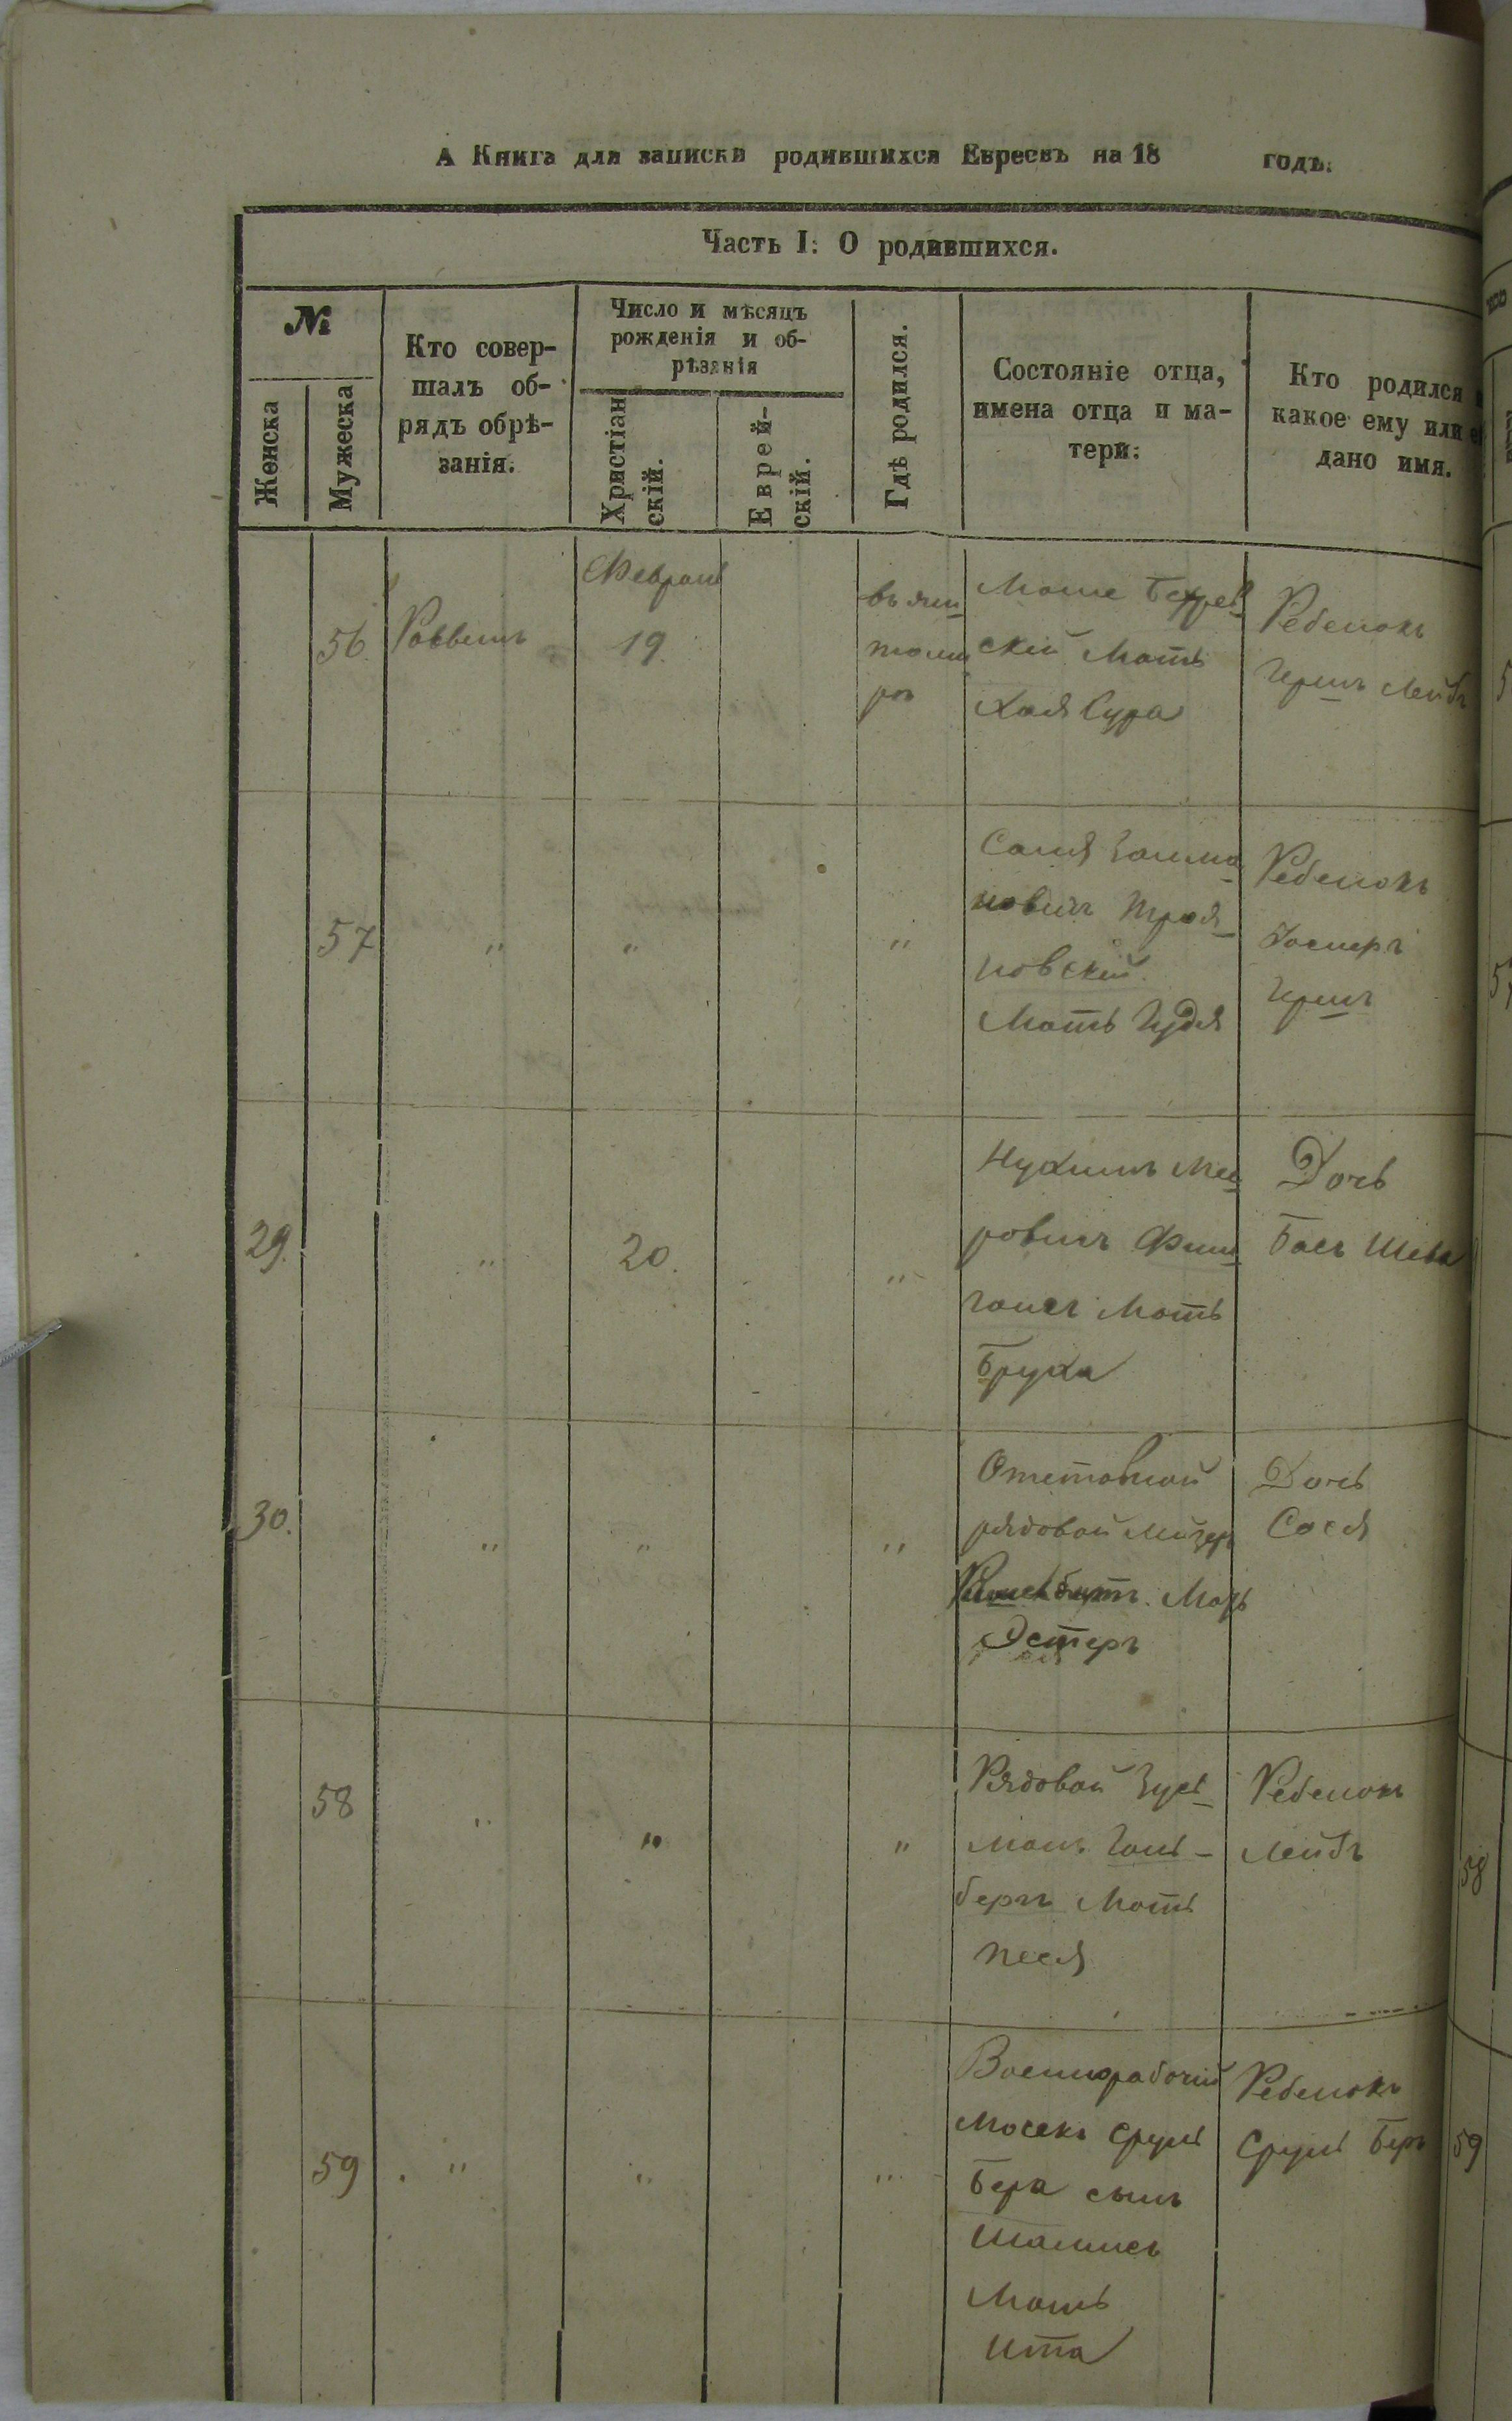 А Книга для записки родившихся Евреевъ на 18 годъ.
Часть I: О родившихся.
№
Женска
Мужеска
Кто совер-
шалъ об-
рядъ обрѣ-
занія.
Число и мѣсяцъ
рожденія и об-
рѣзанія
Христіан
скій.
Еврей-
скій.
Гдѣ родился.
Состояніе отца,
имена отца и ма-
тери:
Кто родился
какое ему или
дано имя.
56
Раввинъ
Февраль
19.
въ жи
томи
рѣ
Моше
скій Мать
Хая Сура
Ребенокъ
Гершъ Лейбъ
57
"
"
"
новичъ Троя
новскій.
Мать Гудя
Ребенокъ
Гершъ
29.
"
20.
"
Нухимъ Мее
ровичъ
Мать
Бруха
Дочь
Бася Шева
30.
"
"
"
Отставной
рядовой
Эстеръ
Дочь
Сося
58
"
"
"
Рядовой Зусь
манъ Голь-
бергъ Мать
Песя
Ребенокъ
Лейбъ
59
"
"
"
Военнорабочій
Мосекъ Сруль
Бера сынъ
Мать
Ита
Ребенокъ
Сруль Беръ
58
59